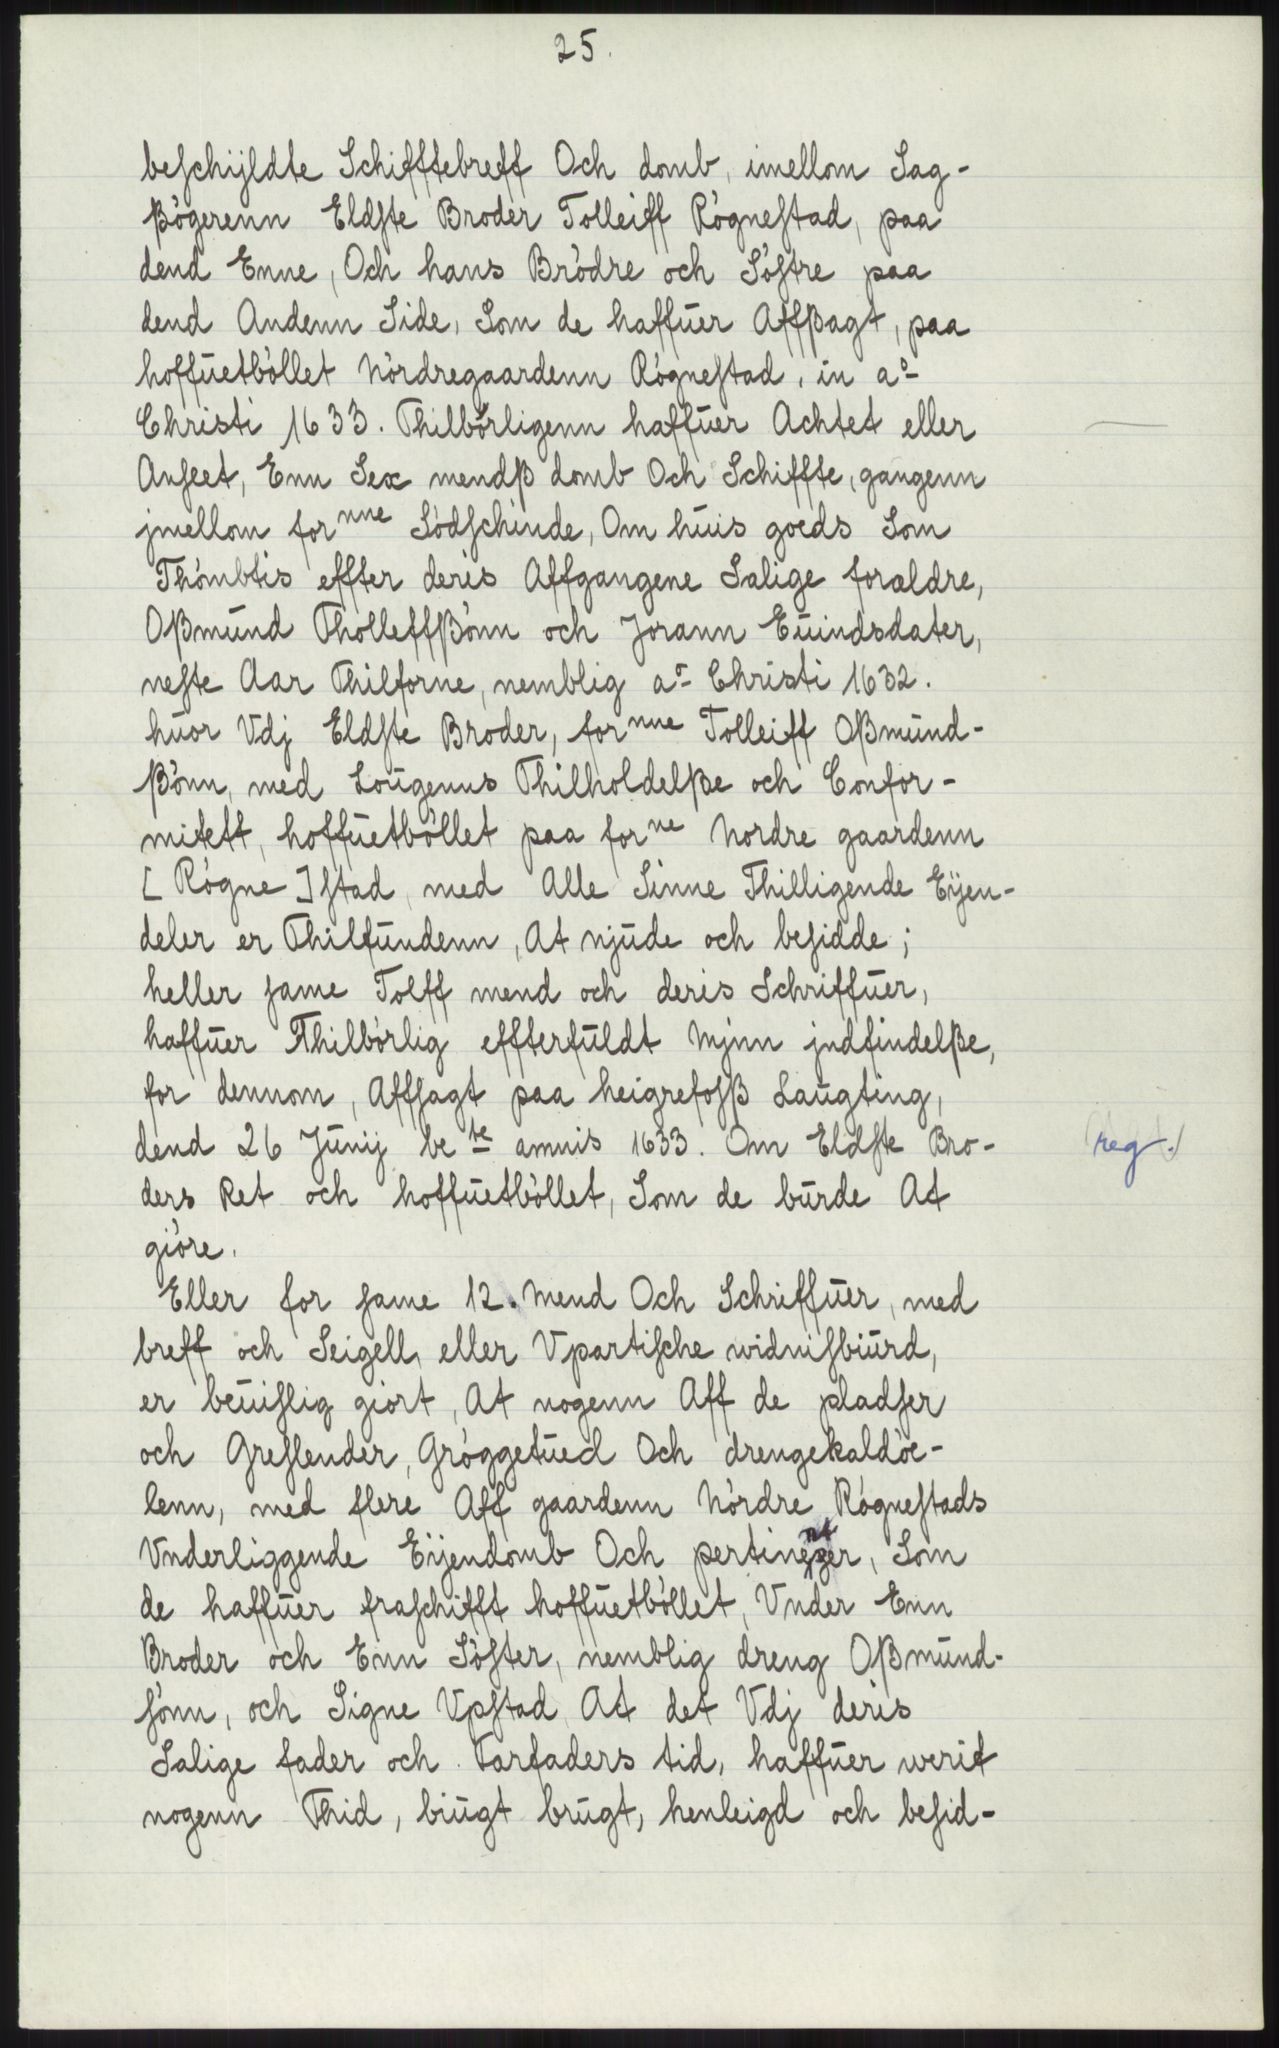 25.
beschijldte Schifftebreff Och domb, imellom Sag-
ßógerenn Eldste Broder Tolleiff Rógnestad, paa
dend Enne, Och hans Bródre och Sóstre paa
dend Andenn Side, Som de haffuer Affßagt, paa
hoffuetbóllet Nórdregaardenn Rógnestad, in ao
Christi 1633. Thilbórligenn haffuer Achtet eller
Anseet, Enn Sex mendß domb Och Schiffte, gangenn
jmellom fornne Södschinde, Om huis goeds Som
Thómbtis effter deris Affgangene Salige forældre,
Oßmund Tholleffßónn och Jorann Euindsdater,
neste Aar Thilforne, nemblig ao Christi 1632.
huor Vdj Eldste Broder, fornne Tolleiff Oßmund-
ßónn, med Lougenns Thilholdelße och Confor-
mitett, hoffuetbóllet paa forne Nordre gaardenn
[Rógne]stad, med Alle Sinne Thilligende Eijen-
deler er Thilfundenn, At njude och besidde;
heller same Tolff mend och deris Schriffuer,
haffuer Thilbórlig effterfuldt Mjnn jndfindelße,
for dennom, Affsagt paa heigrefosß Laugting,
dend 26 Junij bete annis 1633. Om Eldste Bro-
reg.
ders Ret och hoffuetbóllet, Som de burde At
gióre.
Eller for same 12. Mend Och Schriffuer, med
breff och Seigell, eller Vpartische widnisbiurd,
er beuislig giort, At nogenn Aff de pladser
och Greslender, Gróggetued Och drengekaldóc-
lenn, med flere Aff gaardenn Nórdre Rógnestads
Vnderliggende Eijendomb Och pertinentzer, Som
de haffuer fraschifft hoffuetbóllet, Vnder Enn
Broder och Enn Sóster, nemblig dreng Oßmund-
sónn, och Signe Vpstad, At det Vdj deris
Salige fader och Farfaders tid, haffuer werit
nogenn Thid, biugt brugt, henleigd och besid-